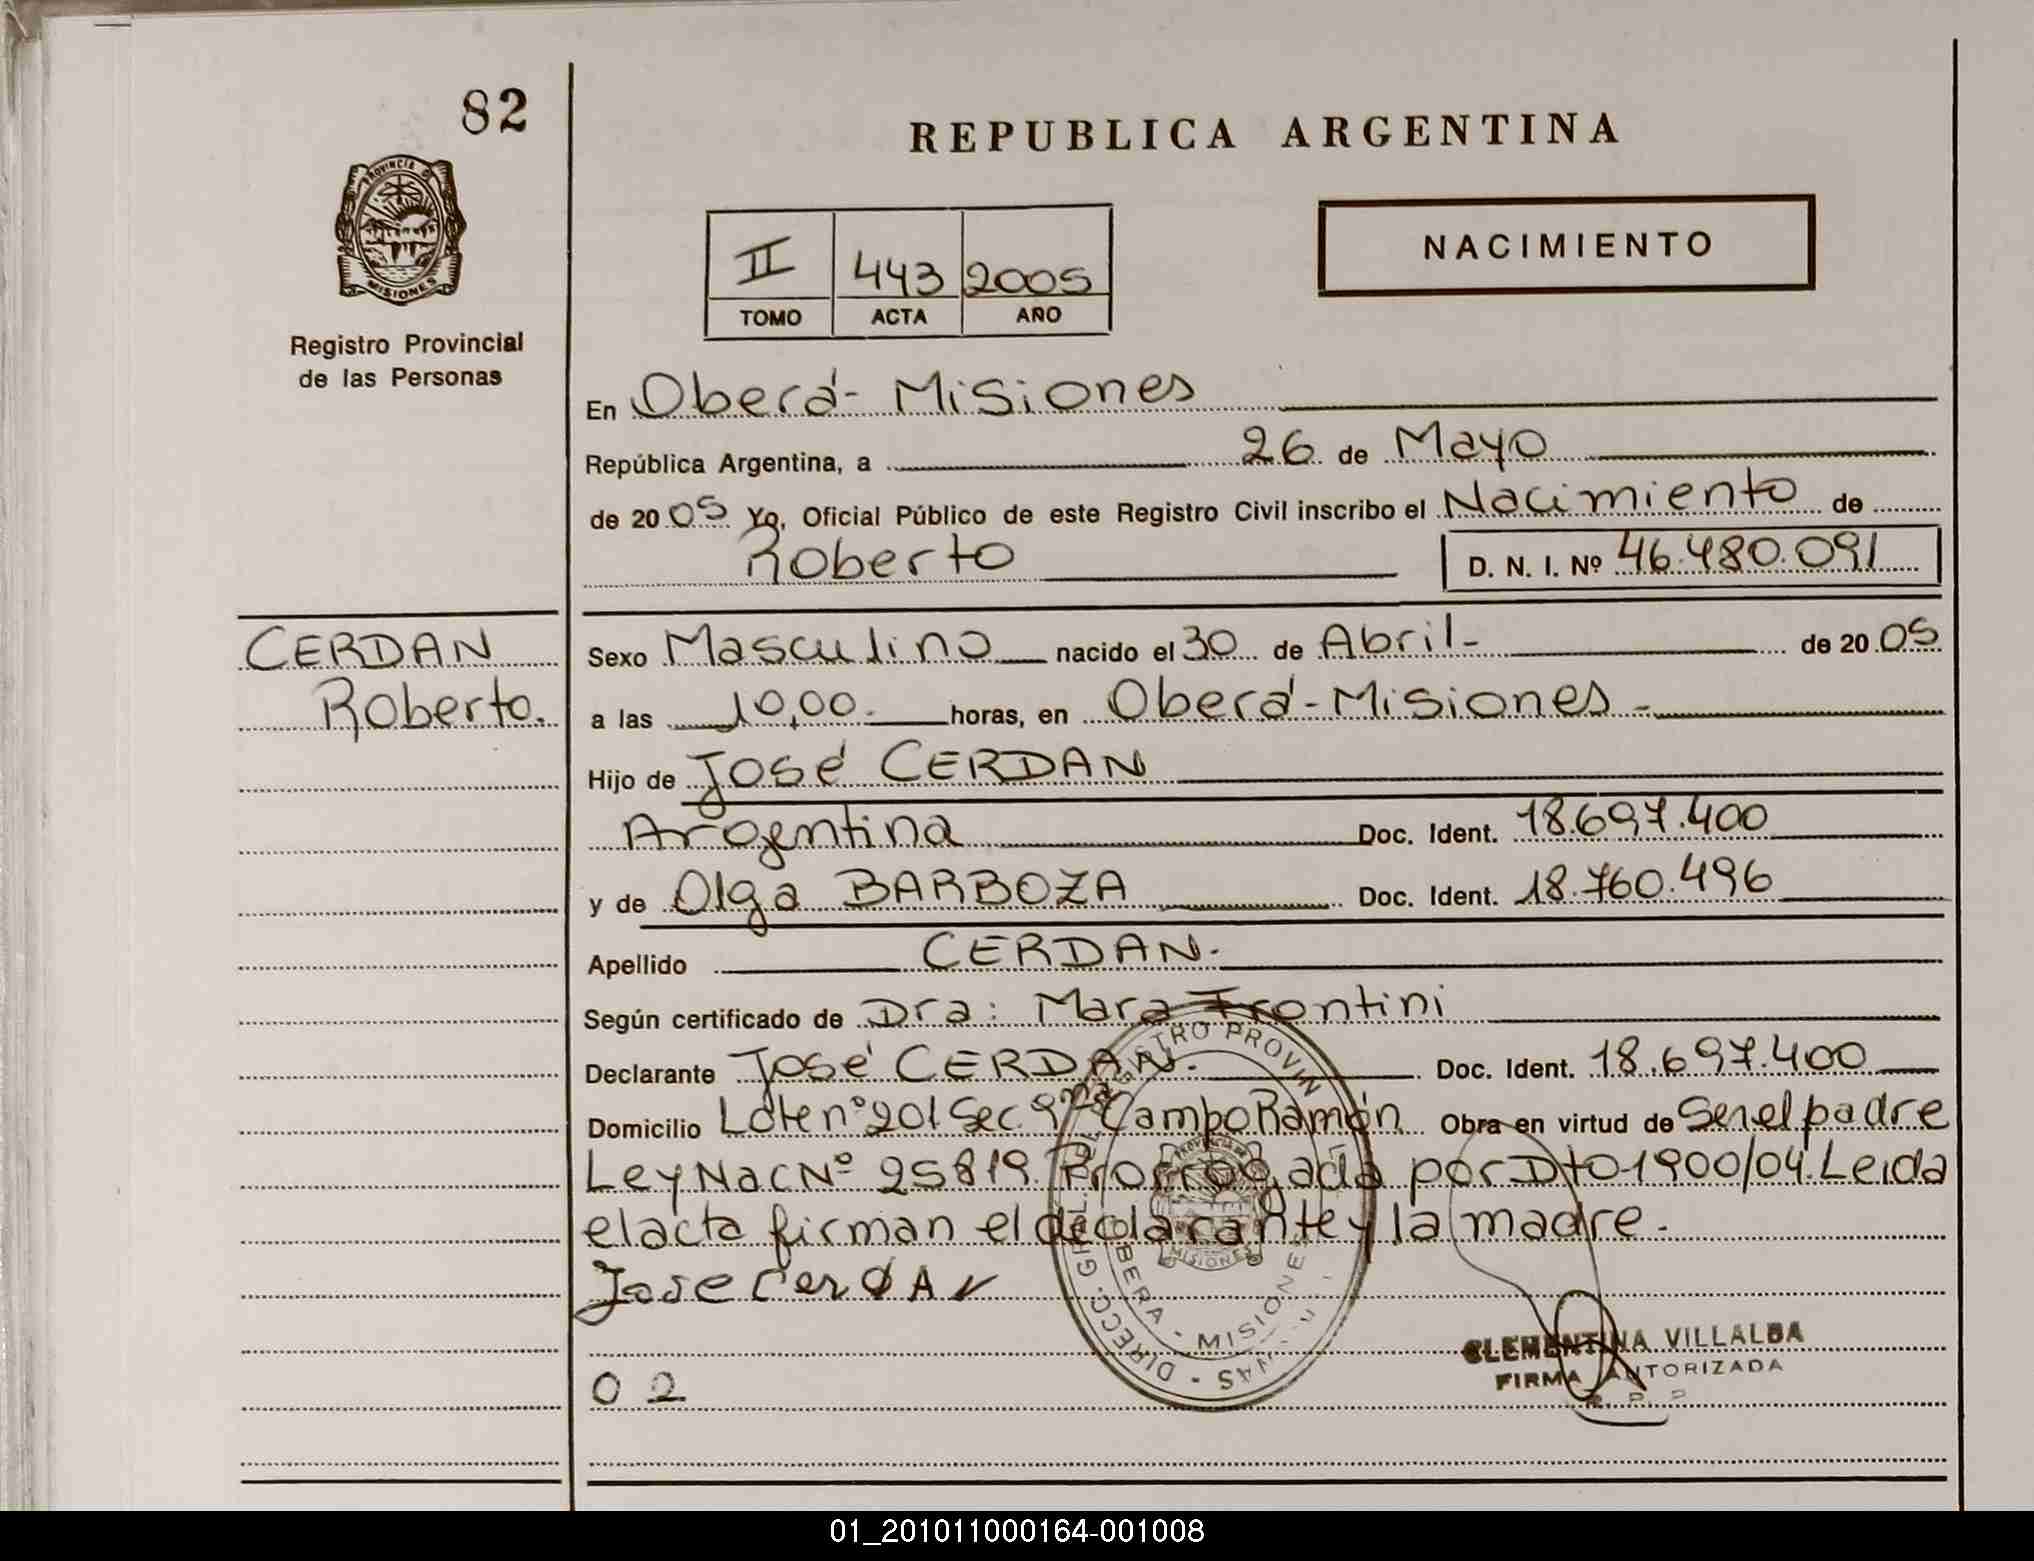 82
REPUBLICA ARGENTINA
PROVINCIA D
MISIONES
Registro Provincial
de las Personas
II 443 2005
TOMO ACTA AÑO
NACIMIENTO
En Oberá - Misiones
República Argentina, a 26 de Mayo
de 2005 Yo, Oficial Público de este Registro Civil inscribo el Nacimiento de
Roberto D. N. I. Nº 46.480.091
CERDAN
Roberto.
Sexo Masculino nacido el 30 de Abril - de 2005
a las 10,00. horas, en Oberá - Misiones -
Hijo de José CERDAN
Argentina Doc. Ident. 18.697.400
y de Olga BARBOZA Doc. Ident. 18.760.496
Apellido CERDAN.
Según certificado de Dra: Mara Frontini
Declarante José CERDAN. Doc. Ident. 18.697.400
Domicilio Lote nº 201 Sec. 9na Campo Ramón Obra en virtud de Ser el padre
Ley Nac Nº 25819. Prorrogada por Dto 1900/04. Leida
el acta firman el declarante y la madre.
Jose CerDAN
O 2
CLEMENTINA VILLALBA
FIRMA AUTORIZADA
MISIONES
01_201011000164-001008